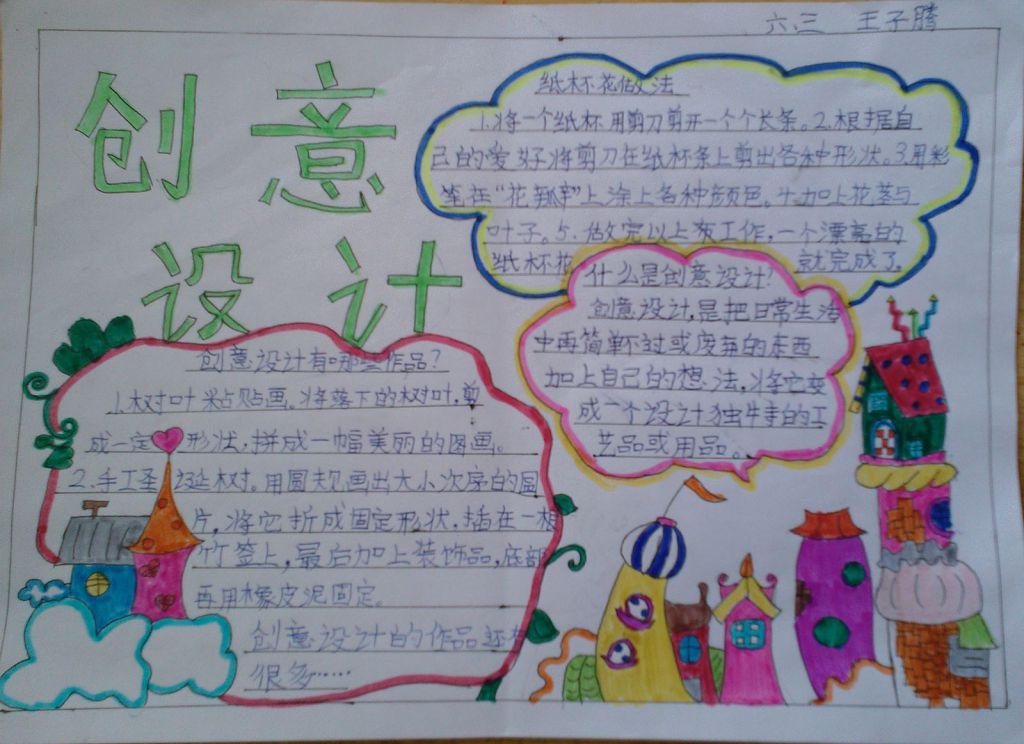 六.三 王子腾
创意
设计
纸杯花做法
1.将一个纸杯用剪刀剪开一个个长条。2.根据自
己的爱好将剪刀在纸杯条上剪出各种形状。3.用彩
笔在“花瓣”上涂上各种颜色。4.加上花茎与
叶子。5.做完以上夜工作,一个漂亮的
纸杯花 就完成了
什么是创意设计?
创意设计,是把日常生活
中再简单不过或废弃的东西
加上自己的想法,将它变
成一个设计独特的工
艺品或用品。
创意设计有哪些作品?
1.树叶粘贴画。将落下的树叶,剪
成一定形状,拼成一幅美丽的图画。
2.手工圣诞树。用圆规画出大小次序的圆
片,将它折成固定形状,插在一根
竹签上,最后加上装饰品,底部
再用橡皮泥固定。
创意设计的作品还有
很多……